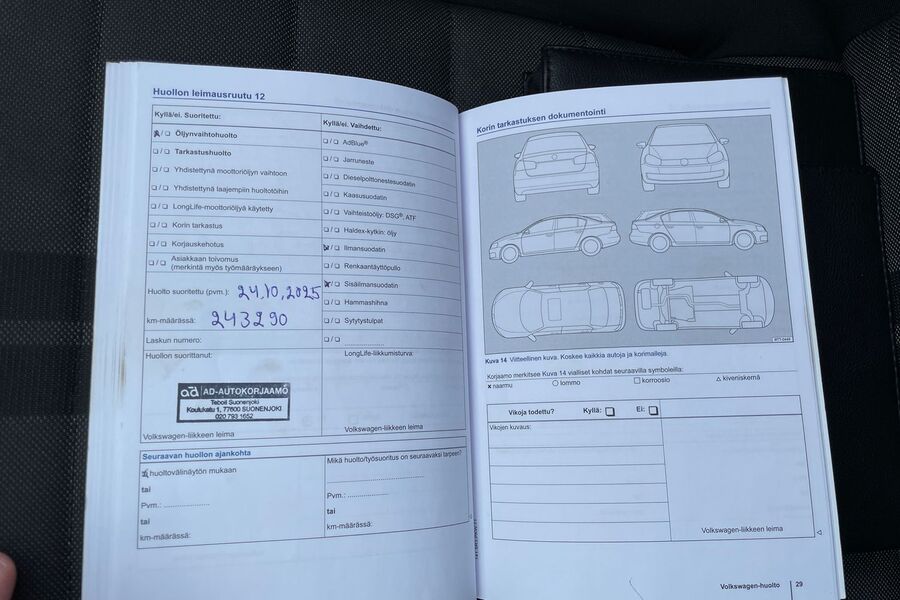 Huollon leimausruutu 12
Kyllä/ei. Suoritettu:
x/❏ Öljynvaihtohuolto
❏/❏ Tarkastushuolto
❏/❏ Yhdistettynä moottoriöljyn vaihtoon
❏/❏ Yhdistettynä laajempiin huoltotöihin
❏/❏ LongLife-moottoriöljyä käytetty
❏/❏ Korin tarkastus
❏/❏ Korjauskehotus
❏/❏ Asiakkaan toivomus
(merkintä myös työmääräykseen)
Huolto suoritettu (pvm.): 24.10.2025
km-määrässä: 243290
Laskun numero:
Huollon suorittanut:
ad AD-AUTOKORJAAMO
Teboil Suonenjoki
Koulukatu 1, 77600 SUONENJOKI
020 793 1652
Volkswagen-liikkeen leima
Kyllä/ei. Vaihdettu:
❏/❏ AdBlue®
❏/❏ Jarruneste
❏/❏ Dieselpolttonestesuodatin
❏/❏ Kaasusuodatin
❏/❏ Vaihteistoöljy: DSG®, ATF
❏/❏ Haldex-kytkin: öljy
x/❏ Ilmansuodatin
❏/❏ Renkaantäyttöpullo
x/❏ Sisäilmansuodatin
❏/❏ Hammashihna
❏/❏ Sytytystulpat
❏/❏ ....................
LongLife-liikkumisturva:
Volkswagen-liikkeen leima
Seuraavan huollon ajankohta
x huoltovälinäytön mukaan
tai
Pvm.: ....................
tai
km-määrässä:
Mikä huolto/työsuoritus on seuraavaksi tarpeen?
Pvm.: ....................
tai
km-määrässä:
Korin tarkastuksen dokumentointi
Kuva 14 Viitteellinen kuva. Koskee kaikkia autoja ja korimalleja.
Korjaamo merkitsee Kuva 14 vialliset kohdat seuraavilla symboleilla:
x naarmu ○ lommo □ korroosio △ kiveniskemä
Vikoja todettu? Kyllä: ❏ Ei: ❏
Vikojen kuvaus:
Volkswagen-liikkeen leima
Volkswagen-huolto 29